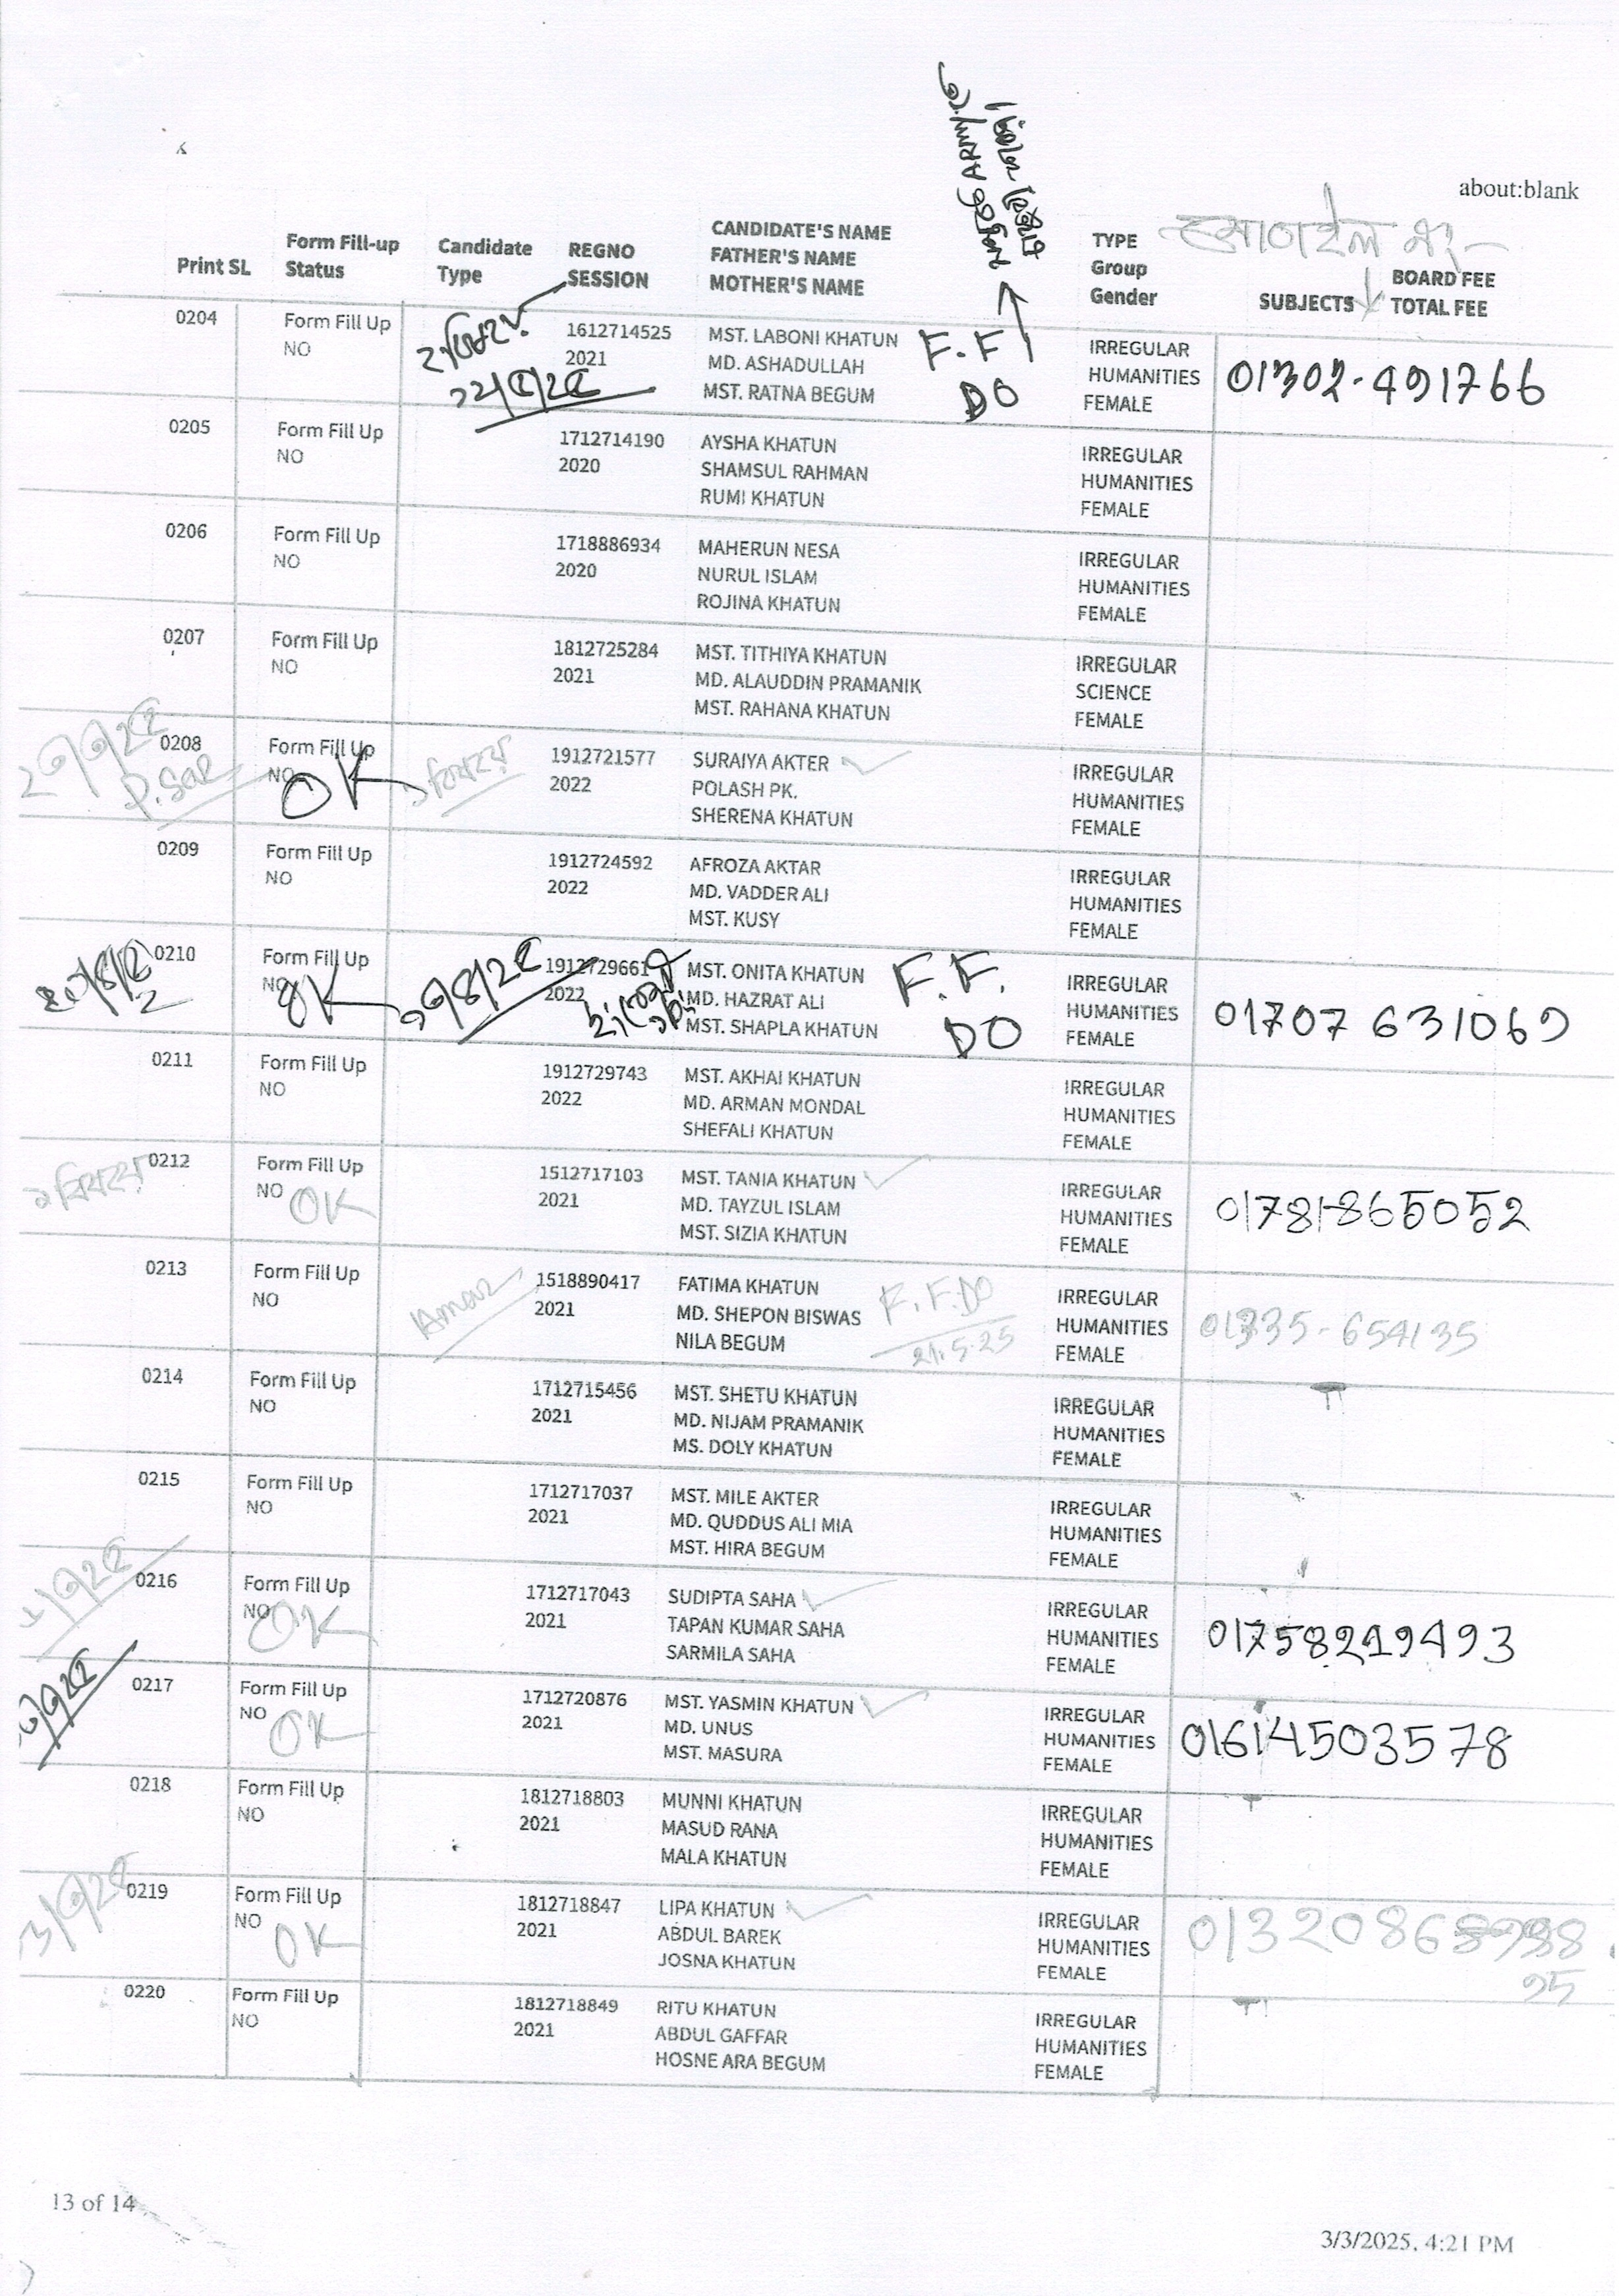 about:blank
মোবাইল নং-
Print SL
Form Fill-up
Status
Candidate
Type
REGNO
SESSION
CANDIDATE'S NAME
FATHER'S NAME
MOTHER'S NAME
TYPE
Group
Gender
SUBJECTS
BOARD FEE
TOTAL FEE
0204 Form Fill Up 1612714525 MST. LABONI KHATUN F.F IRREGULAR
NO 2021 MD. ASHADULLAH DO HUMANITIES 01302-491766
MST. RATNA BEGUM FEMALE
0205 Form Fill Up 1712714190 AYSHA KHATUN IRREGULAR
NO 2020 SHAMSUL RAHMAN HUMANITIES
RUMI KHATUN FEMALE
0206 Form Fill Up 1718886934 MAHERUN NESA IRREGULAR
NO 2020 NURUL ISLAM HUMANITIES
ROJINA KHATUN FEMALE
0207 Form Fill Up 1812725284 MST. TITHIYA KHATUN IRREGULAR
NO 2021 MD. ALAUDDIN PRAMANIK SCIENCE
MST. RAHANA KHATUN FEMALE
0208 Form Fill Up 1912721577 SURAIYA AKTER IRREGULAR
NO OK 2022 POLASH PK. HUMANITIES
SHERENA KHATUN FEMALE
0209 Form Fill Up 1912724592 AFROZA AKTAR IRREGULAR
NO 2022 MD. VADDER ALI HUMANITIES
MST. KUSY FEMALE
0210 Form Fill Up 1912729661 MST. ONITA KHATUN F.F. IRREGULAR
NO OK 2022 MD. HAZRAT ALI DO HUMANITIES 01707 631069
MST. SHAPLA KHATUN FEMALE
0211 Form Fill Up 1912729743 MST. AKHAI KHATUN IRREGULAR
NO 2022 MD. ARMAN MONDAL HUMANITIES
SHEFALI KHATUN FEMALE
0212 Form Fill Up 1512717103 MST. TANIA KHATUN IRREGULAR
NO OK 2021 MD. TAYZUL ISLAM HUMANITIES 01781-865052
MST. SIZIA KHATUN FEMALE
0213 Form Fill Up 1518890417 FATIMA KHATUN F.F.DO IRREGULAR
NO Amar 2021 MD. SHEPON BISWAS 21.5.25 HUMANITIES 01335-654135
NILA BEGUM FEMALE
0214 Form Fill Up 1712715456 MST. SHETU KHATUN IRREGULAR
NO 2021 MD. NIJAM PRAMANIK HUMANITIES
MS. DOLY KHATUN FEMALE
0215 Form Fill Up 1712717037 MST. MILE AKTER IRREGULAR
NO 2021 MD. QUDDUS ALI MIA HUMANITIES
MST. HIRA BEGUM FEMALE
0216 Form Fill Up 1712717043 SUDIPTA SAHA IRREGULAR
NO OK 2021 TAPAN KUMAR SAHA HUMANITIES 01758219493
SARMILA SAHA FEMALE
0217 Form Fill Up 1712720876 MST. YASMIN KHATUN IRREGULAR
NO OK 2021 MD. UNUS HUMANITIES 01614503578
MST. MASURA FEMALE
0218 Form Fill Up 1812718803 MUNNI KHATUN IRREGULAR
NO 2021 MASUD RANA HUMANITIES
MALA KHATUN FEMALE
0219 Form Fill Up 1812718847 LIPA KHATUN IRREGULAR
NO OK 2021 ABDUL BAREK HUMANITIES
JOSNA KHATUN FEMALE
0220 Form Fill Up 1812718849 RITU KHATUN IRREGULAR
NO 2021 ABDUL GAFFAR HUMANITIES
HOSNE ARA BEGUM FEMALE
13 of 14
3/3/2025, 4:21 PM